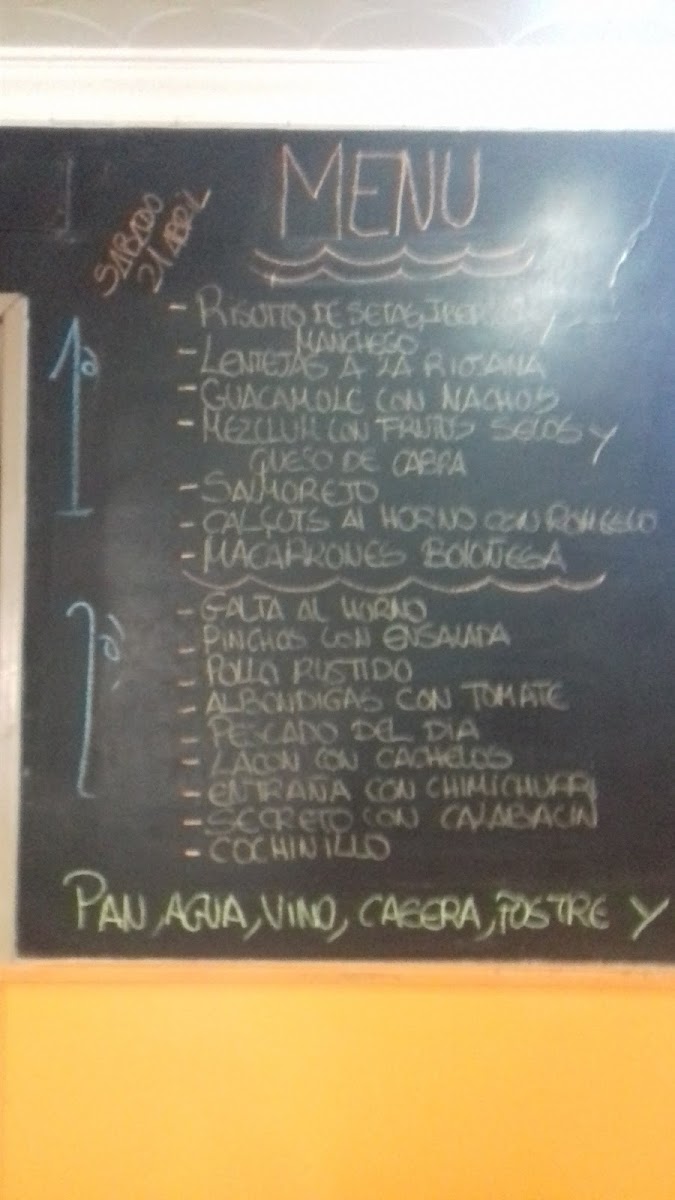 MENU
SABADO
21 ABRIL
1º
- RISOTTO DE SETAS,
MANCHEGO
- LENTEJAS A LA RIOJANA
- GUACAMOLE CON NACHOS
- MEZCLUM CON FRUTOS SECOS Y
QUESO DE CABRA
- SALMOREJO
- CALÇOTS AL HORNO CON ROMESCO
- MACARRONES BOLOÑESA
2º
- GALTA AL HORNO
- PINCHOS CON ENSALADA
- POLLO RUSTIDO
- ALBONDIGAS CON TOMATE
- PESCADO DEL DIA
- LACON CON CACHELOS
- ENTRAÑA CON CHIMICHURRI
- SECRETO CON CALABACIN
- COCHINILLO
PAN, AGUA, VINO, CASERA, POSTRE Y